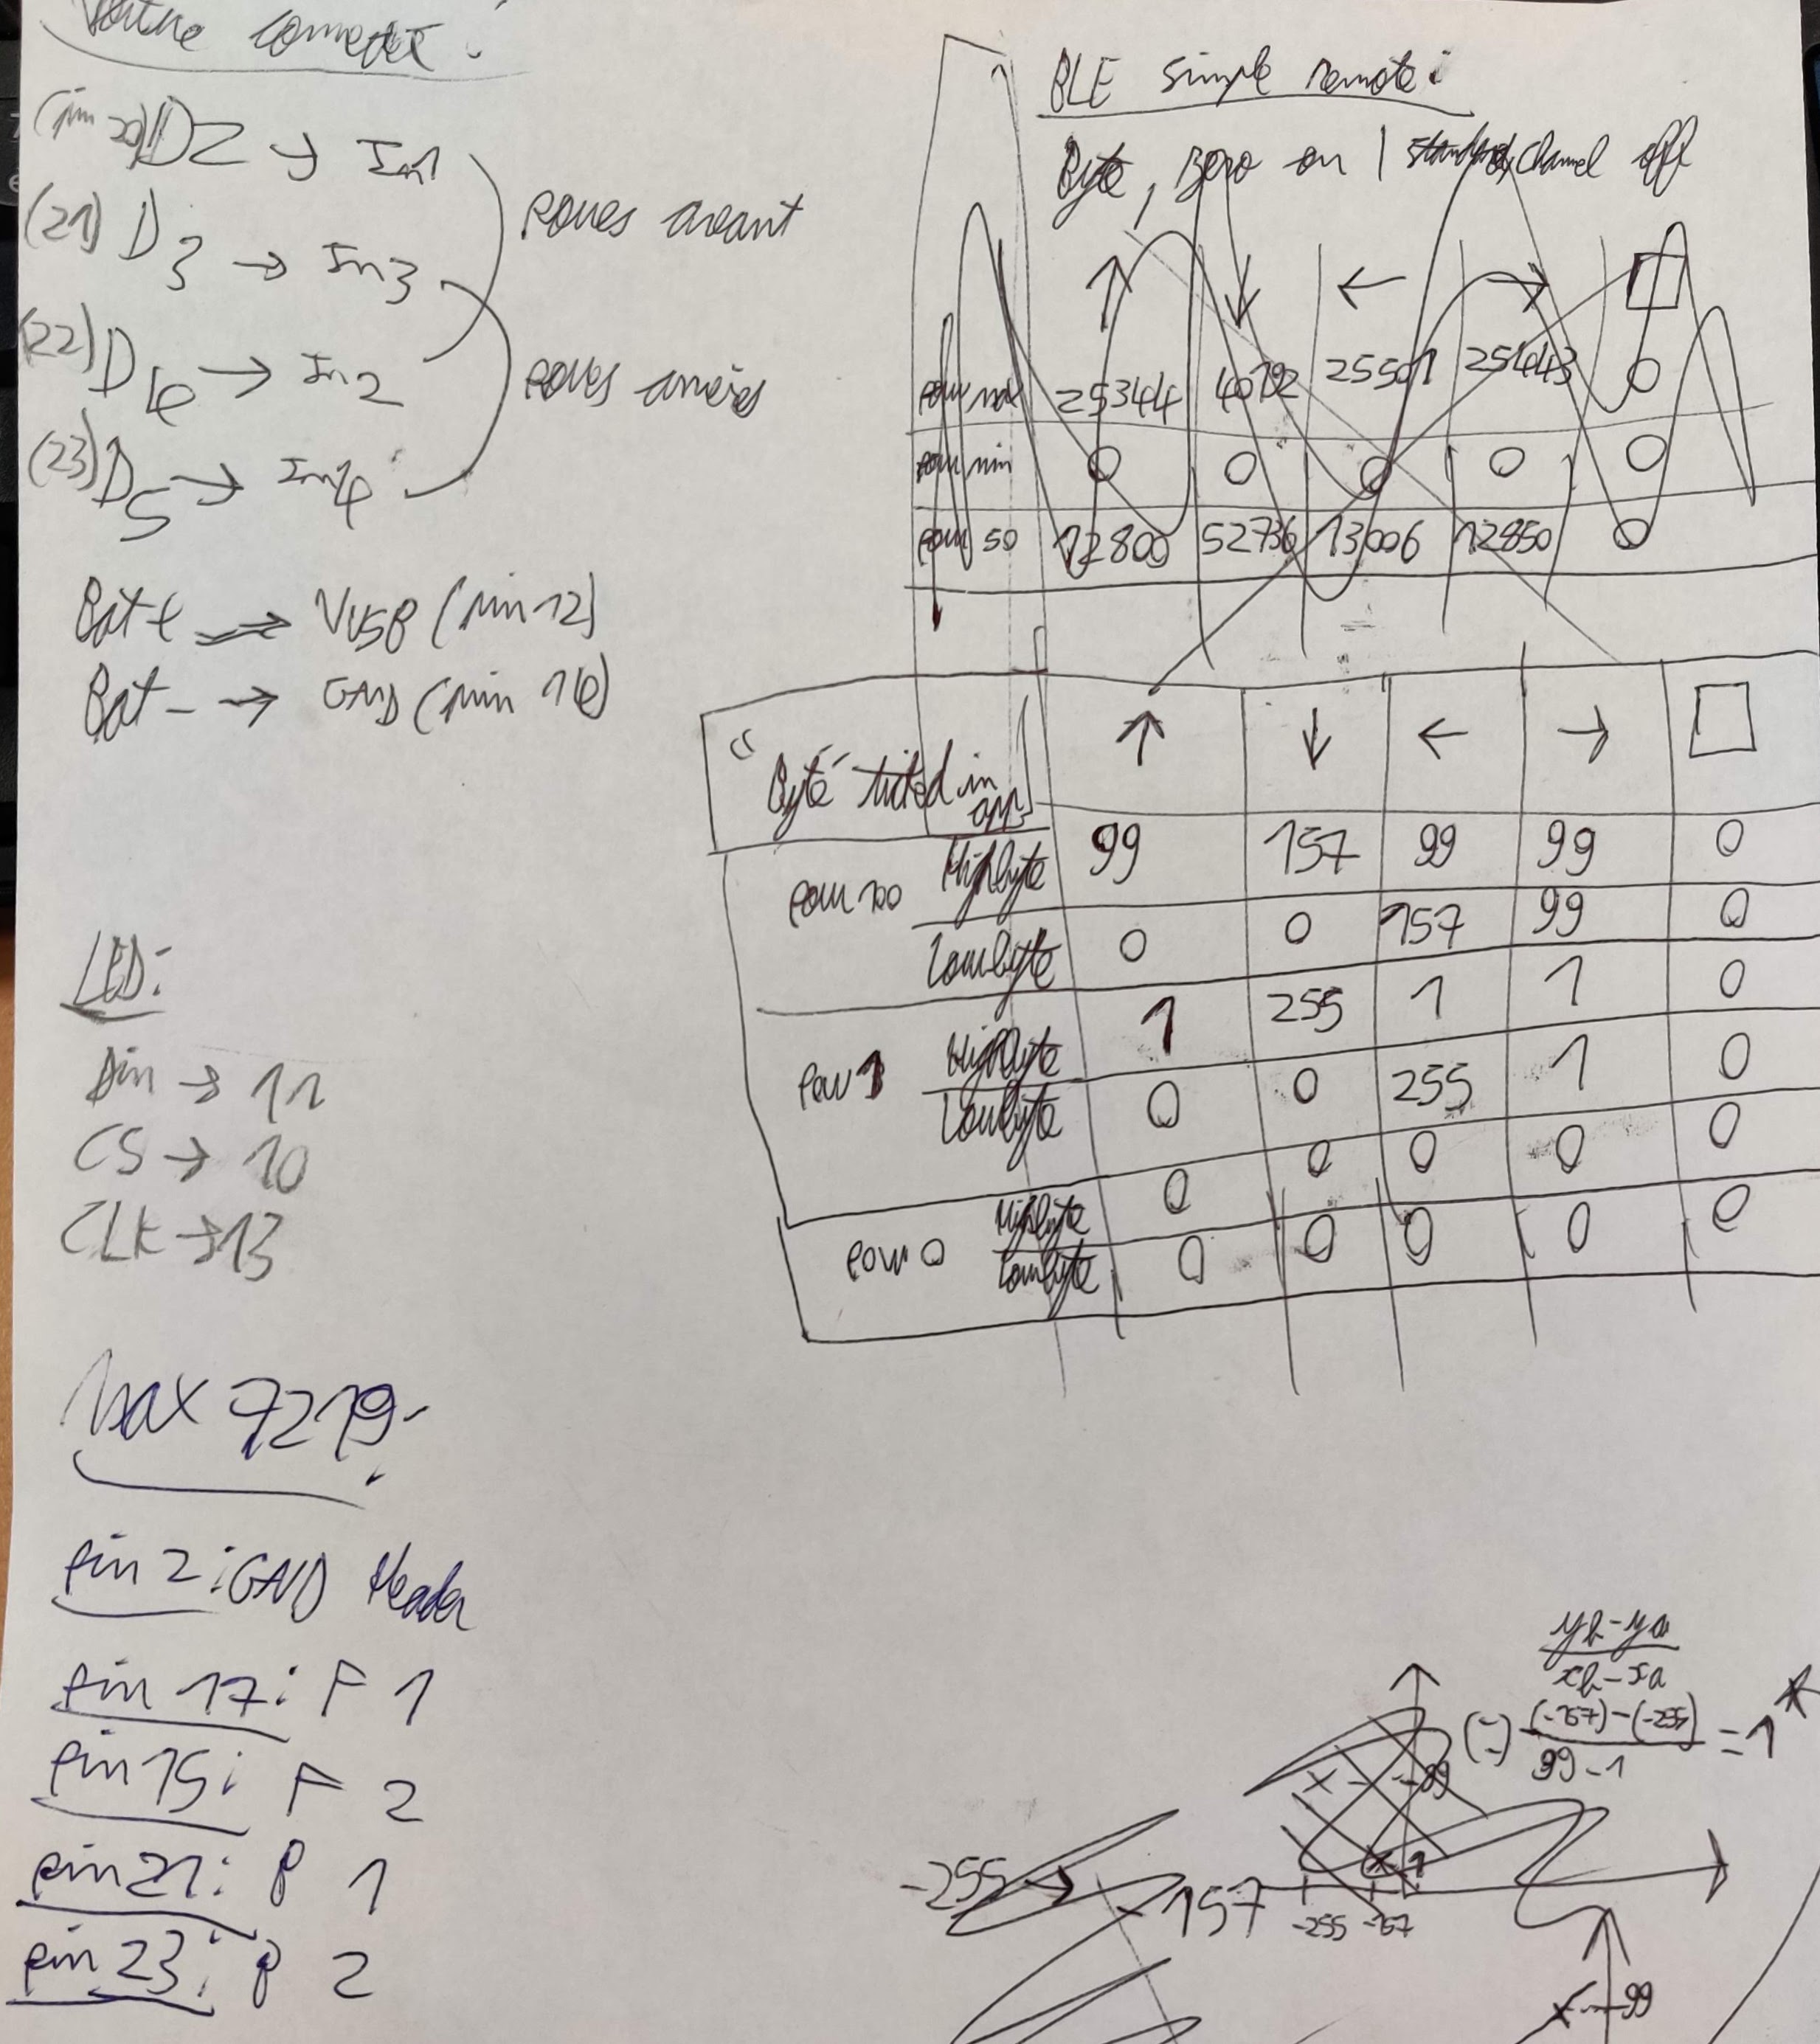 Voiture connecté :
(pin 20) D2 → In1
(21) D3 → In3
roues avant
(22) D4 → In2
roues arrières
(23) D5 → In4
Bat+ → VUSB (pin 12)
Bat- → GND (pin 14)
LED:
Din → 11
CS → 10
CLK → 13
Max 7219:
pin 2: GND Header
pin 17: F 1
pin 15: F 2
pin 21: P 1
pin 23: P 2
BLE simple remote:
Byte, zero on / standard, channel off
↑ ↓ ← → □
pour max 25344 40192 25501 25443 0
pour min 0 0 0 0 0
pour 50 12800 52736 13006 12850 0
"Byte" in app ↑ ↓ ← → □
pour 100 Highbyte 99 157 99 99 0
Lowbyte 0 0 157 99 0
pour 1 Highbyte 1 255 1 1 0
Lowbyte 0 0 255 1 0
pour 0 Highbyte 0 0 0 0 0
Lowbyte 0 0 0 0 0
yb-ya
xb-xa
(=) (-157)-(-255) = 1
99-1
99
1
-255 → -157
-255 -157
99